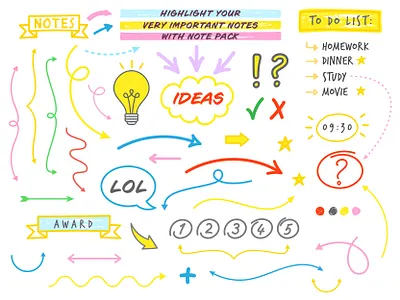 NOTES
HIGHLIGHT YOUR
VERY IMPORTANT NOTES
WITH NOTE PACK
TO DO LIST:
HOMEWORK
DINNER
STUDY
MOVIE
! ?
IDEAS
09:30
?
LOL
AWARD
1 2 3 4 5